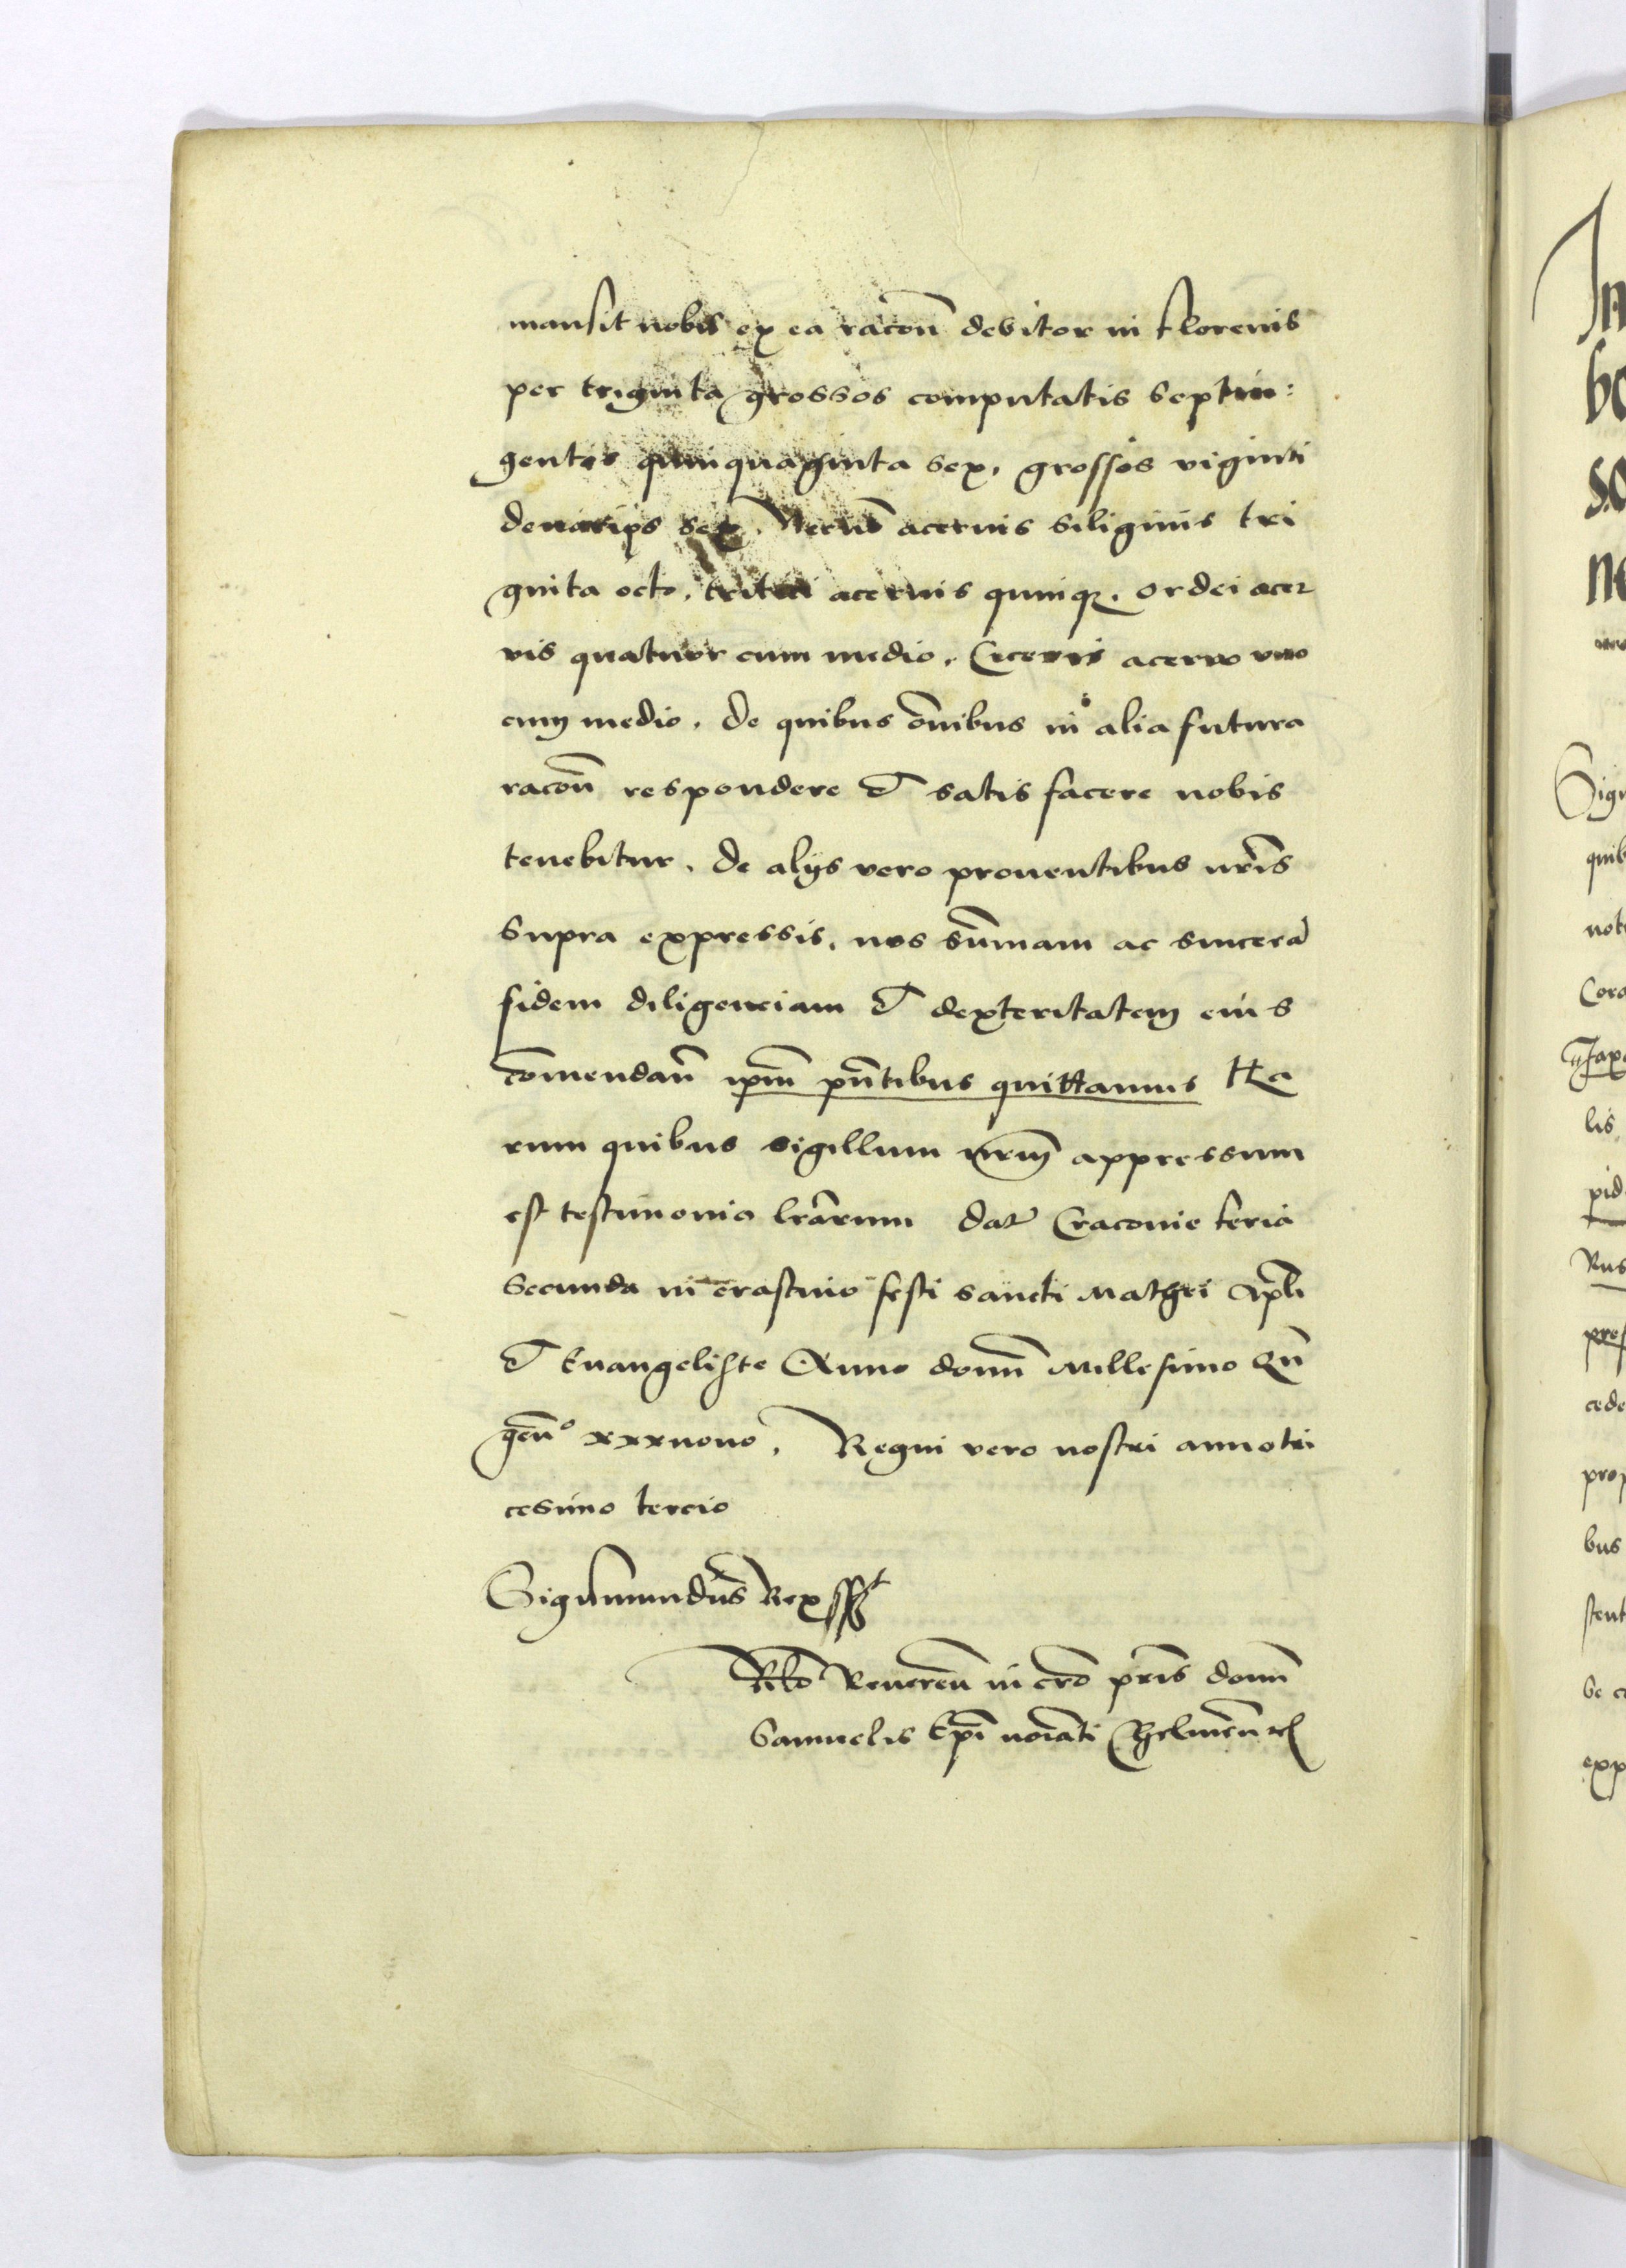 mansit nobis ex ea racōn debitor in florenis
per triginta grossos computatis septin:
gentos quinquaginta sex, grossos viginti
denarijs sex. Necnō aceruis siliginis tri
ginta octo, tritici aceruis quinq3. ordei acer
vis quatuor cum medio. Ciceris acervo vno
cum medio. De quibus oīnibus in alia futura
racōn respondere et satis facere nobis
tenebitur. De alijs vero prouentibus nrīs
supra expressis, nos sūmmam ac sincerā
fidem diligenciam et dexteritatem eius
cōmendan̄ ipm̄ pn̄tibus quittamus Ha
rum quibus sigillum nrm̄ appressum
est testimonio lrārum Dat Cracouie feria
secunda in crastino festi sancti Mathei Apl̄i
et Euangeliste Anno domī Millesimo Qn̄
gen̄o xxxnono. Regni vero nostri anno tri
cesimo tercio
Sigismundus Rex sst
Rlō Reueren̄ in cro prīs domī
Samuelis Epī noiāti Chelmen̄
In
Sign
quib
not
Cora
lis
pid
Rus
pres
cede
prop
bus
stent
se c
exp